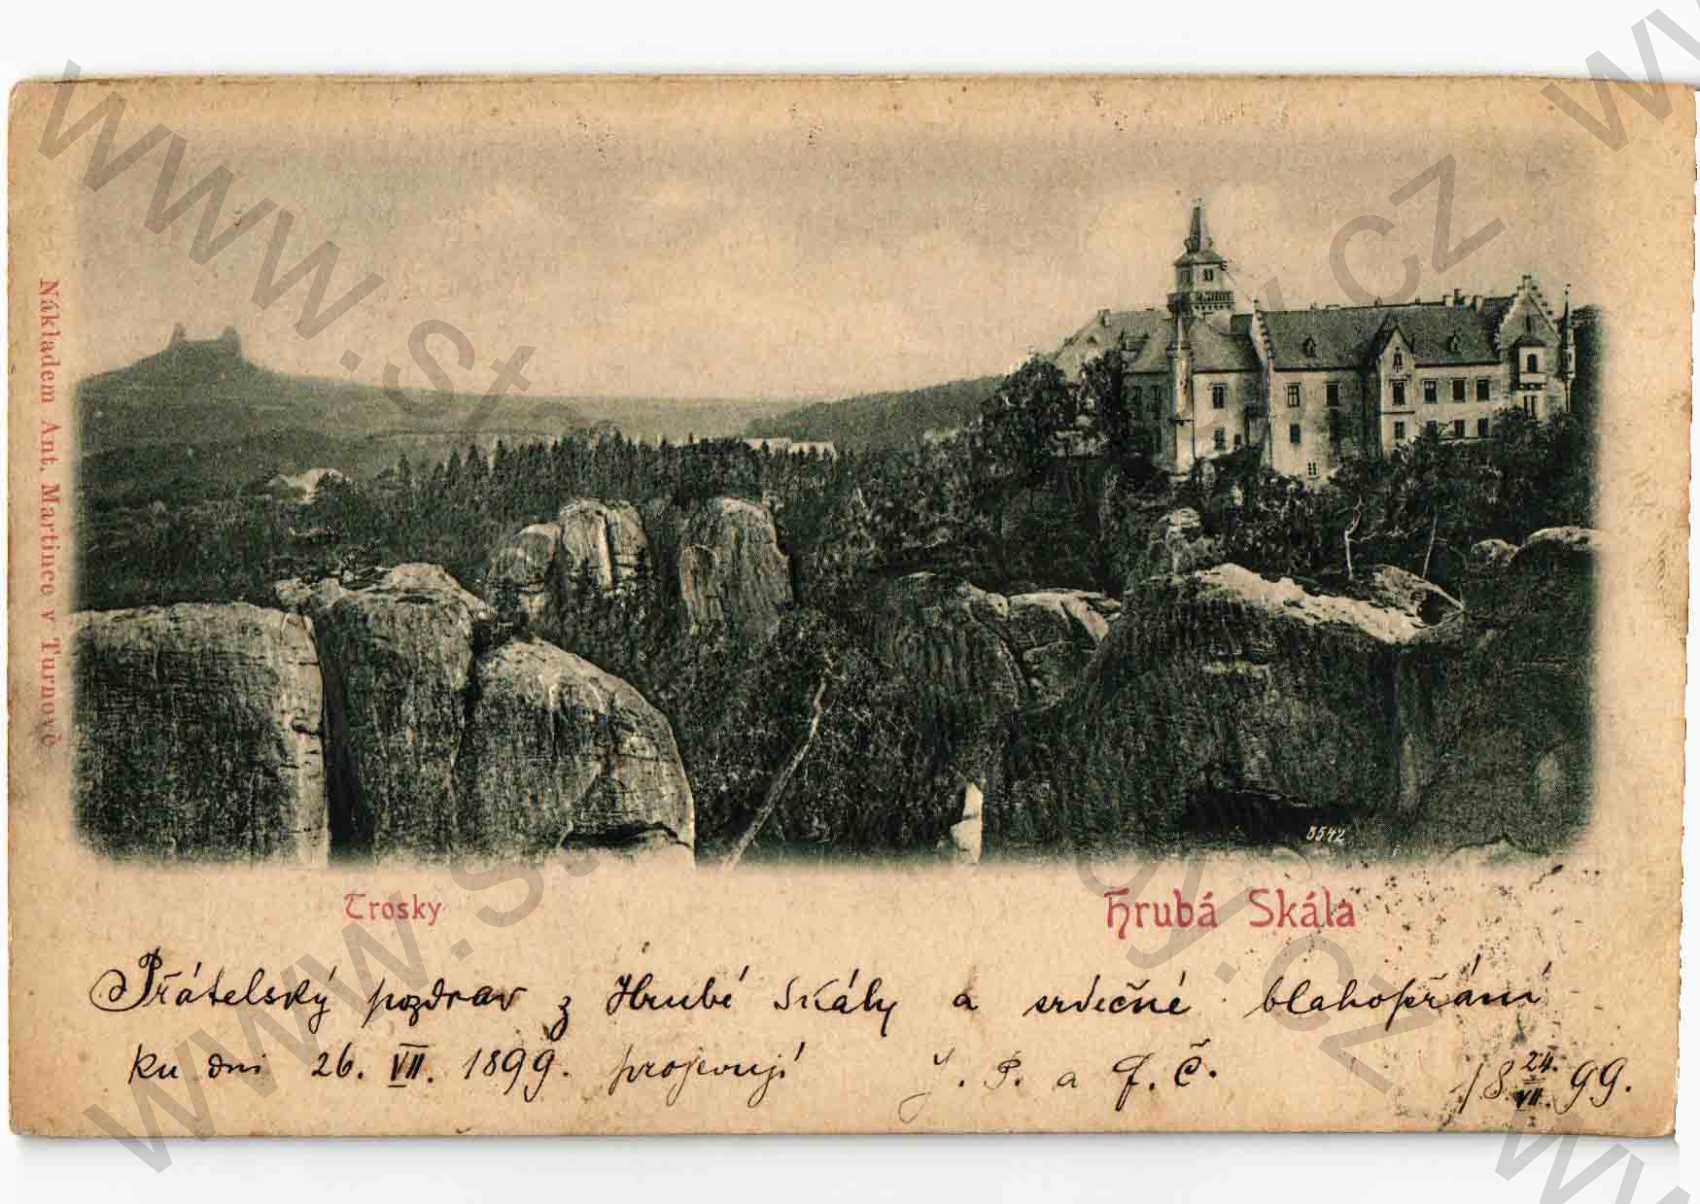 Nákladem Ant. Martince v Turnově
8542
Trosky
Hrubá Skála
Přátelský pozdrav z Hrubé Skály a srdečné blahopřání
ku dni 26. VII. 1899. projevují J. P. a F. Č. 18 24. VII. 99.